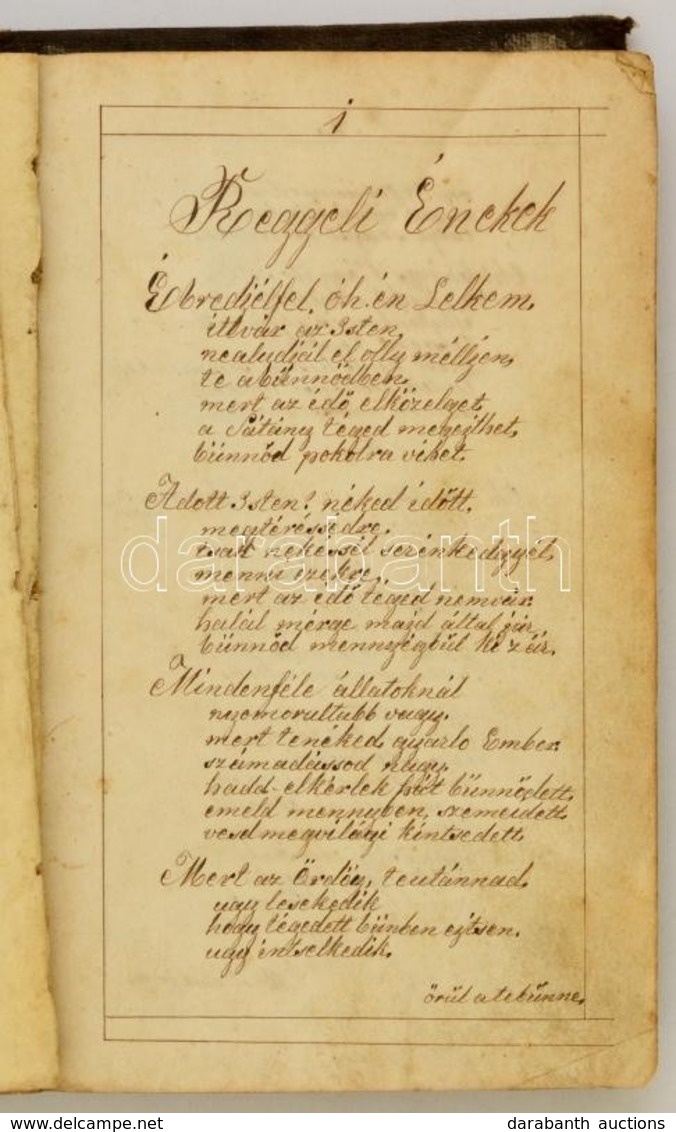 1
Reggeli Énekek
Ébredjélfel, óh én Lelkem,
ittvár az Isten,
nealudjál el olly méllyen,
te abünnödben,
mert az idő, elközelget,
a Sátány téged megejthet,
bünnöd pokolra vihet.
Adott Isten? néked időtt,
megtéréssedre,
tsak nekéssél serénkedgyél,
menni ezekre,
mert az idő téged nemvár
halál mérge majd által jár,
bünnöd mennyégbül ki zár,
Mindenféle állatoknál
nyomorultabb vagy,
mert tenéked, gyarlo Ember
számadássod nagy,
hadd-elkérlek hát bünnödett,
emeld mennyben, szemeidett,
vesd megvilági kintsedett,
Mert az Ördög, teutánnad,
ugy lesekedik
hogy tégedett bünben ejtsen,
ugy intselkedik,
örül a te bünne,
darabanth
www.delcampe.net
darabanth auctions